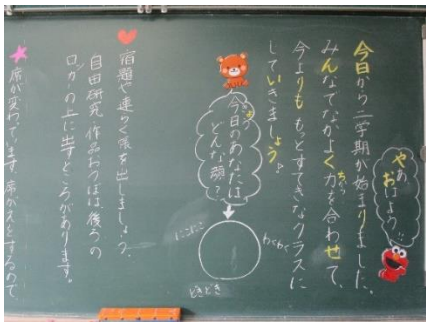 やあ
おはよう!!
今日から二学期が始まりました。
みんなでなかよく力を合わせて、
ちから
今よりももっとすてきなクラスに
していきましょう♪
今日のあなたは
きょう
どんな顔?
わくわく
にこにこ
どきどき
宿題や連らく帳を出しましょう。
自由研究、作品おうぼは、後ろの
ロッカーの上に出すところがあります。
席が変わっています。席がえをするので、